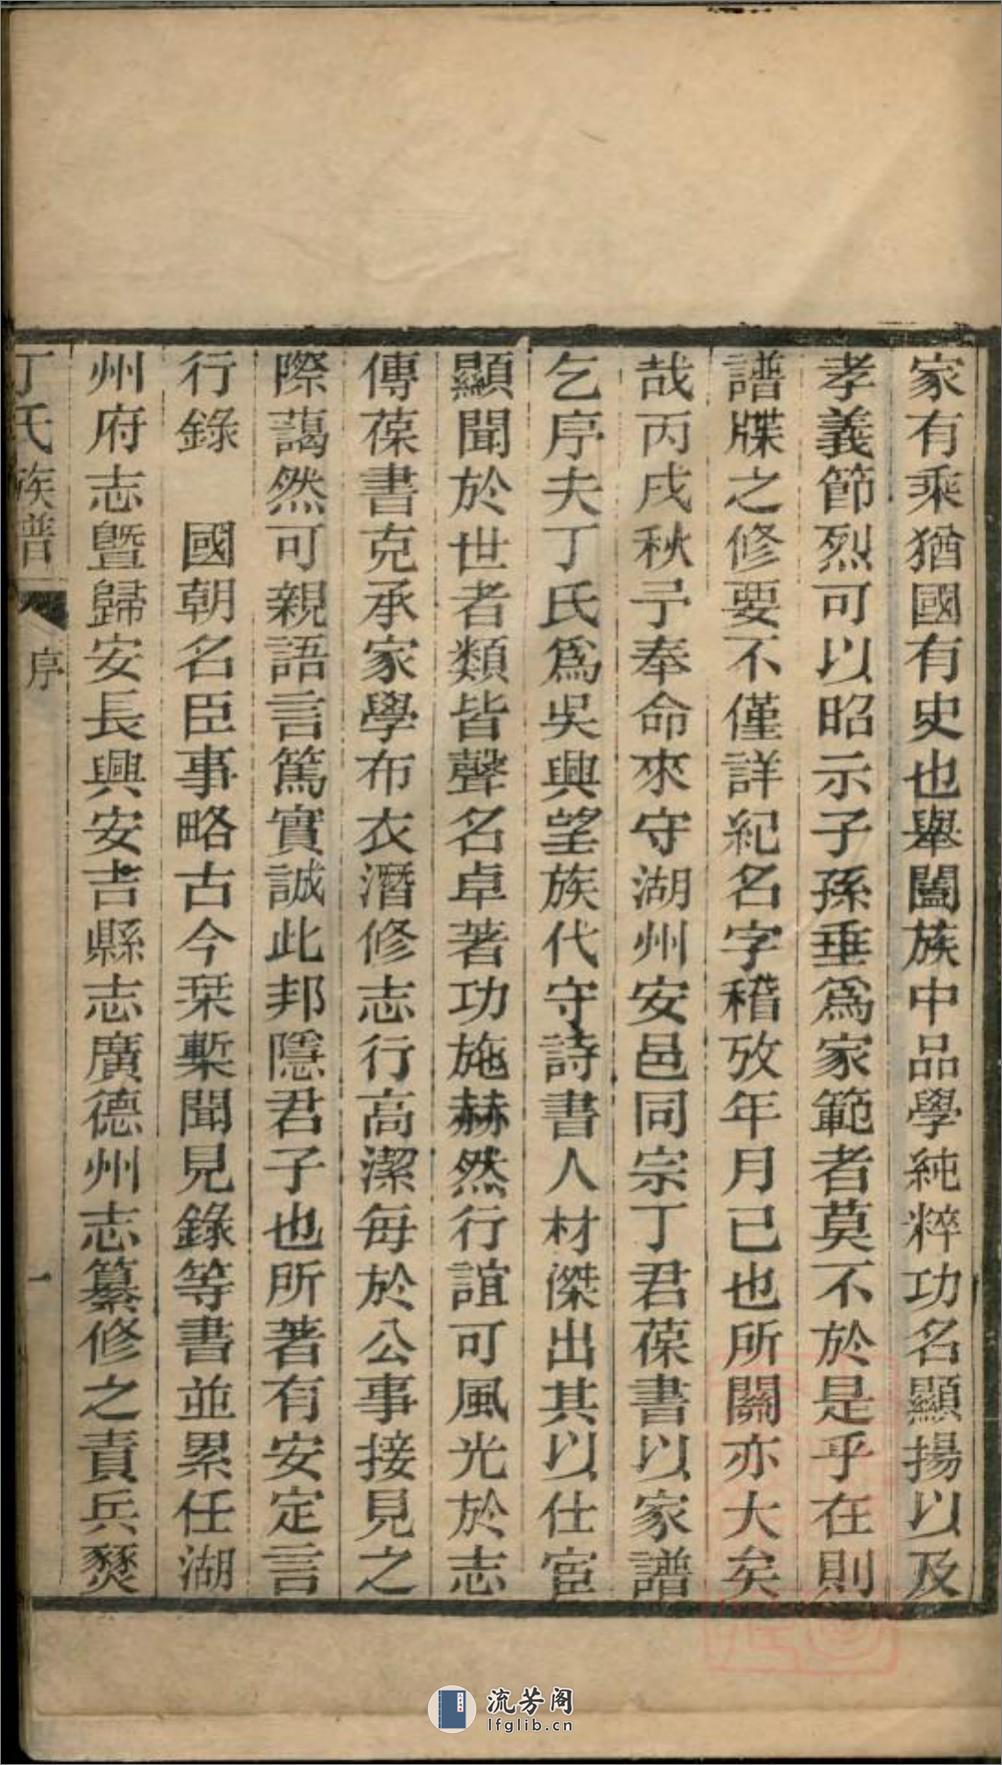 家有乘猶國有史也舉闔族中品學純粹功名顯揚以及
孝義節烈可以昭示子孫垂爲家範者莫不於是乎在則
譜牒之修要不僅詳紀名字稽攷年月已也所關亦大矣
哉丙戌秋予奉命來守湖州安邑同宗丁君葆書以家譜
乞序夫丁氏爲吳興望族代守詩書人材傑出其以仕宦
顯聞於世者類皆聲名卓著功施赫然行誼可風光於志
傳葆書克承家學布衣潛修志行高潔每於公事接見之
際藹然可親語言篤實誠此邦隱君子也所著有安定言
行錄　國朝名臣事略古今棐槧聞見錄等書並累任湖
州府志暨歸安長興安吉縣志廣德州志纂修之責兵燹
丁氏族譜　序　一
流芳阁
lfglib.cn